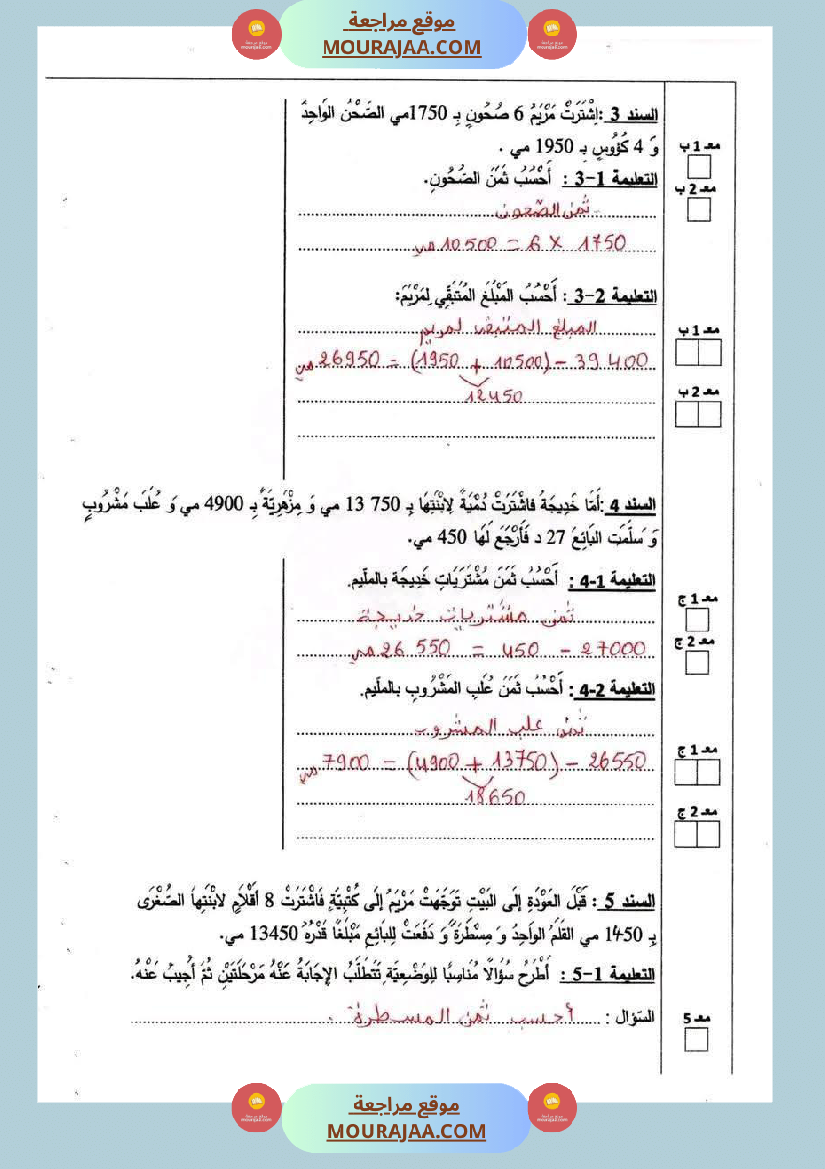 موقع مراجعة
MOURAJAA.COM
السند 3 :اِشْتَرَتْ مَرْيَمُ 6 صُحُونٍ بِـ 1750مي الصَّحْنُ الوَاحِدُ
وَ 4 كُؤُوسٍ بـ 1950 مي .
معـ 1 ب
التعليمة 1-3 : أَحْسُبُ ثَمَنَ الصُّحُونِ.
معـ 2 ب
ثمن الصحون
1750 × 6 = 10500 مي
التعليمة 2-3 : أَحْسُبُ المَبْلَغَ المُتَبَقِّي لِمَرْيَمَ:
المبلغ المتبقي لمريم
معـ 1 ب
39 400 - (10500 + 1950) = 26950 مي
12450
معـ 2 ب
السند 4 :أَمَّا خَدِيجَةُ فاشْتَرَتْ دُمْيَةً لِابْنَتِهَا بِـ 750 13 مي وَ مِزْهَرِيَّةً بِـ 4900 مي وَ عُلَبَ مَشْرُوبٍ
وَ سَلَّمَت البَائِعُ 27 د فَأَرْجَعَ لَهَا 450 مي.
التعليمة 1-4 : أَحْسُبُ ثَمَنَ مُشْتَرَيَاتِ خَدِيجَة بالملّيم.
معـ 1 ج
ثمن مشتريات خديجة
معـ 2 ج
27000 - 450 = 26 550 مي
التعليمة 2-4 : أَحْسُبُ ثَمَنَ عُلَبِ المَشْرُوبِ بالملّيم.
ثمن علب المشروب
معـ 1 ج
26550 - (13750 + 4900) = 7900 مي
18650
معـ 2 ج
السند 5 : قَبْلَ العَوْدَةِ إلَى البَيْتِ تَوَجَّهَتْ مَرْيَمُ إلَى كُتْبِيَّةٍ فَاشْتَرَتْ 8 أَقْلَامٍ لابْنَتِهاَ الصُّغْرَى
بِـ 1450 مي القَلَمُ الوَاحِدُ وَ مِسْطَرَةً وَ دَفَعَتْ لِلبَائِعِ مَبْلَغًا قَدْرُهُ 13450 مي.
التعليمة 1-5 : أَطْرَحُ سُؤَالًا مُنَاسِبًا لِلوَضْعِيَّةِ تَتَطَلَّبُ الإجَابَةُ عَنْهُ مَرْحَلَتَيْنِ ثُمَّ أُجِيبُ عَنْهُ.
معـ 5
السّؤال : أحسب ثمن المسطرة .
موقع مراجعة
MOURAJAA.COM